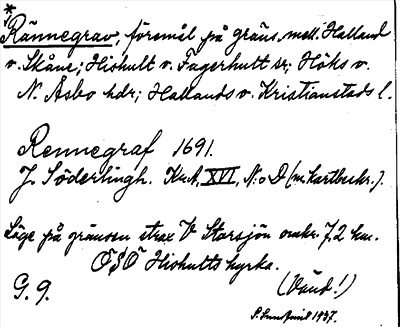 * Rännegrav, föremål på gräns. mell. Halland
o. Skåne; Hishult o. Fagerhult sr; Höks o.
N. Åsbo hdr; Hallands o. Kristianstads l.
Rennegraf 1691.
J. Söderlingh. Kn. A, XVI, N:o D (m. kartbeskr.).
Läge på gränsen strax V Storsjön omkr. 7,2 km.
ÖSÖ Hishults kyrka.
G. 9. (Vänd!)
1937.